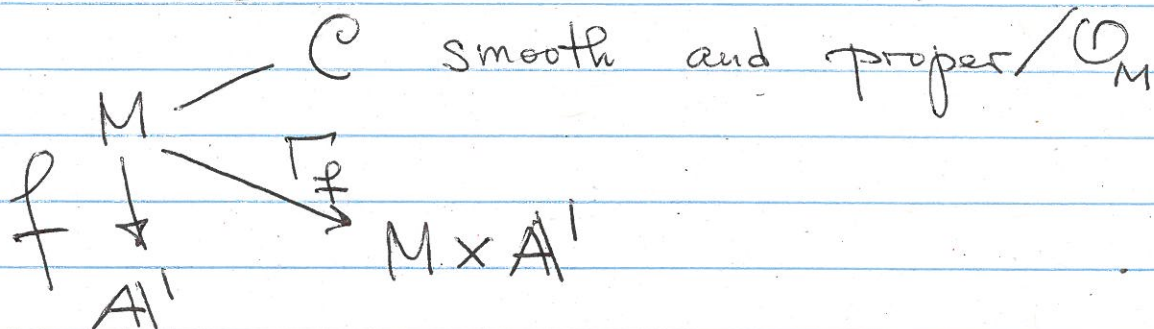 C smooth and proper/𝒪_M
M
f Γ_f
M × A¹
A¹